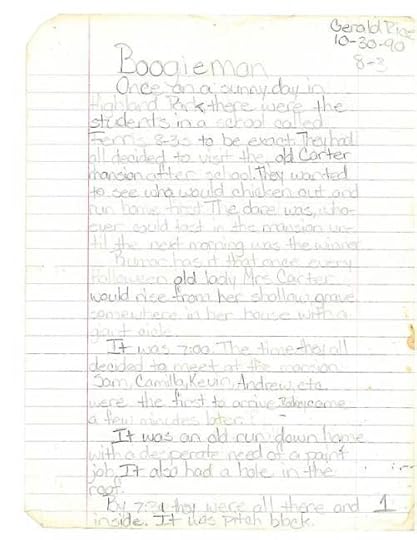 Gerald Rice
10-30-90
8-3
Boogieman
Once on a sunny day in
Highland Park there were the
students in a school called
Ferris 8-3s to be exact. They had
all decided to visit the old Carter
mansion after school. They wanted
to see who would chicken out and
run home first. The dare was, who-
ever could last in the mansion un-
til the next morning was the winner
Rumor has it that once every
Halloween old lady Mrs Carter
would rise from her shallow grave
somewhere in her house with a
giant
It was 7:00. The time they all
decided to meet at the mansion
Sam, Camilla, Kevin, Andrew, etc
were the first to arrive. came
a few minutes later.
It was an old run down home
with a desperate need of a paint
job. It also had a hole in the
roof.
By 7:34 they were all there and 1
inside. It was pitch black.